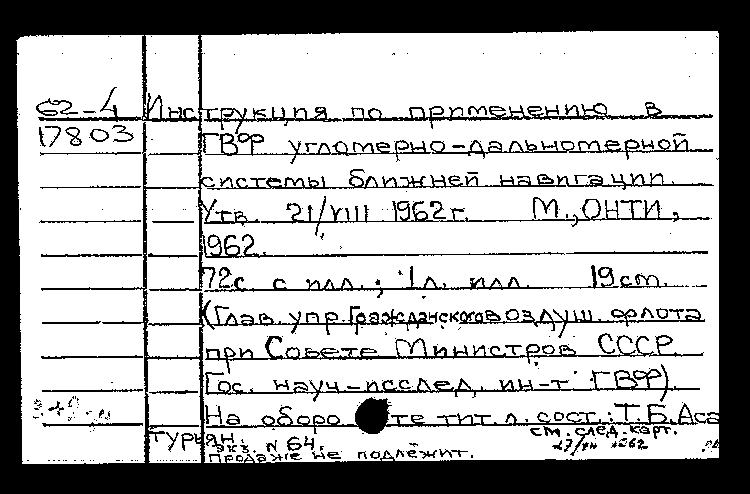 62-4 Инструкция по применению в
17803 ГВФ угломерно-дальномерной
системы ближней навигации.
Утв. 21/VIII 1962г. М., ОНТИ,
1962.
72с. с илл.; 1л. илл. 19 cm.
(Глав. упр. Гражданского воздуш. флота
при Совете Министров СССР.
Гос. науч-исслед. ин-т ГВФ).
На оборо те тит. л. сост.: Т.Б.Аса
турьян. см. след. карт.
экз. N 64.
Продаже не подлежит.